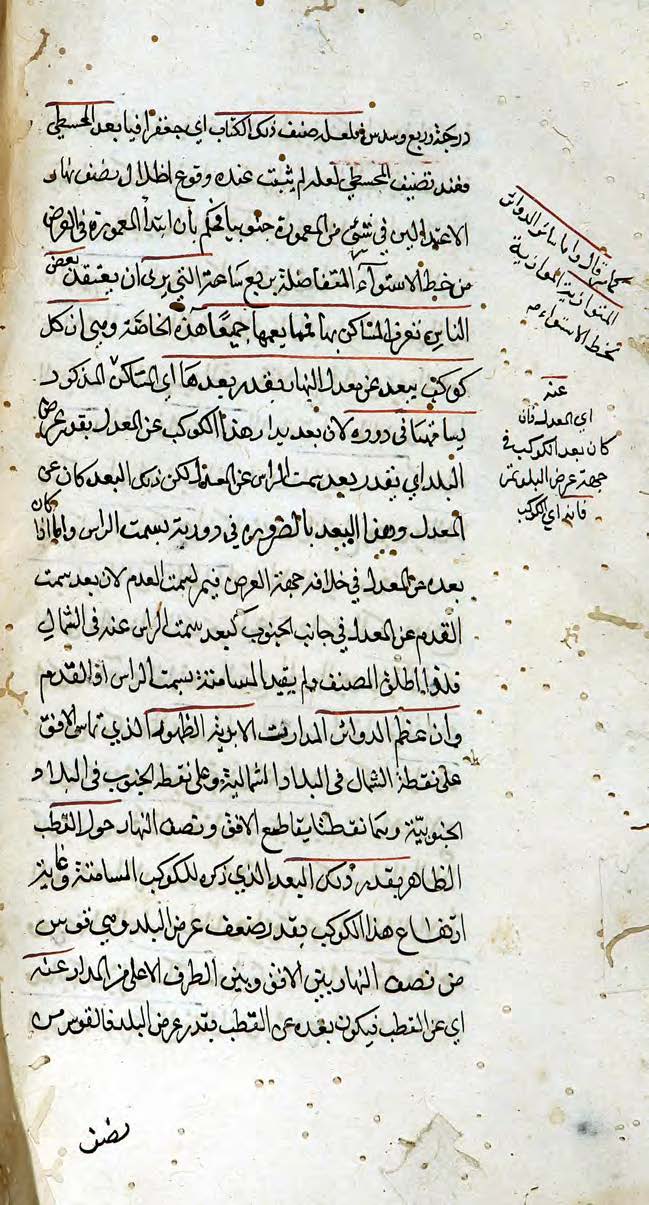 درجة وربع وسدس فلعله صنف ذلك الكتاب اي جغرافيا بعد المجسطي
فعند تصنيف المجسطي لعله لم يثبت عنده وقوع اظلال نصف نهار
الاعتدالين في شئ من المعمورة جنوبيا فحكم بان ابتدأ المعمورة في العرض
من خط الاستوآء المتفاضلة بربع ساعة التي يرى ان يعتقد بعض
الناس تعرف المساكن بها فما يعمها جميعا هذه الخاصة وهي ان كل
كوكب يبعد عن معدل النهار بقدر بعدها اي المساكن المذكورة
يسامتها في دوره لان بعد مدار هذا الكوكب عن المعدل بقدر عرض
البلد اي بقدر بعد سمت الراس عن المعدل لكن ذلك البعد كان عن
المعدل وهذا البعد بالضرورة في دورية بسمت الراس واما اذا كان
بعده عن المعدل في خلاف جهة العرض فيمر بسمت القدم لان بعد سمت
القدم عن المعدل في جانب الجنوب كبعد سمت الراس عنه في الشمال
فلذا اطلق المصنف ولم يقيد المسامتة بسمت الراس او القدم
وان عظم الدوائر المدارات الابدية الظهور الذي تماس الافق
على نقطة الشمال في البلاد الشمالية وعلى نقطة الجنوب في البلاد
الجنوبية وهما نقطتا تقاطع الافق ونصف النهار حول القطب
الظاهر بقدر ذلك البعد الذي ذكره للكوكب المسامتة وغاية
ارتفاع هذا الكوكب بقدر ضعف عرض البلد وهي قوس
من نصف النهار بين الافق وبين الطرف الاعلى من المدار عنه
اي عن القطب فيكون بعده عن القطب بقدر عرض البلد فالقوس من
نصف
كما قال واما سائر الدوائر
المتوازية الموازية
لخط الاستواء
عنه
اي المعدل فان
كان بعد الكوكب في
جهة عرض البلد تمر
فانه اي الكوكب